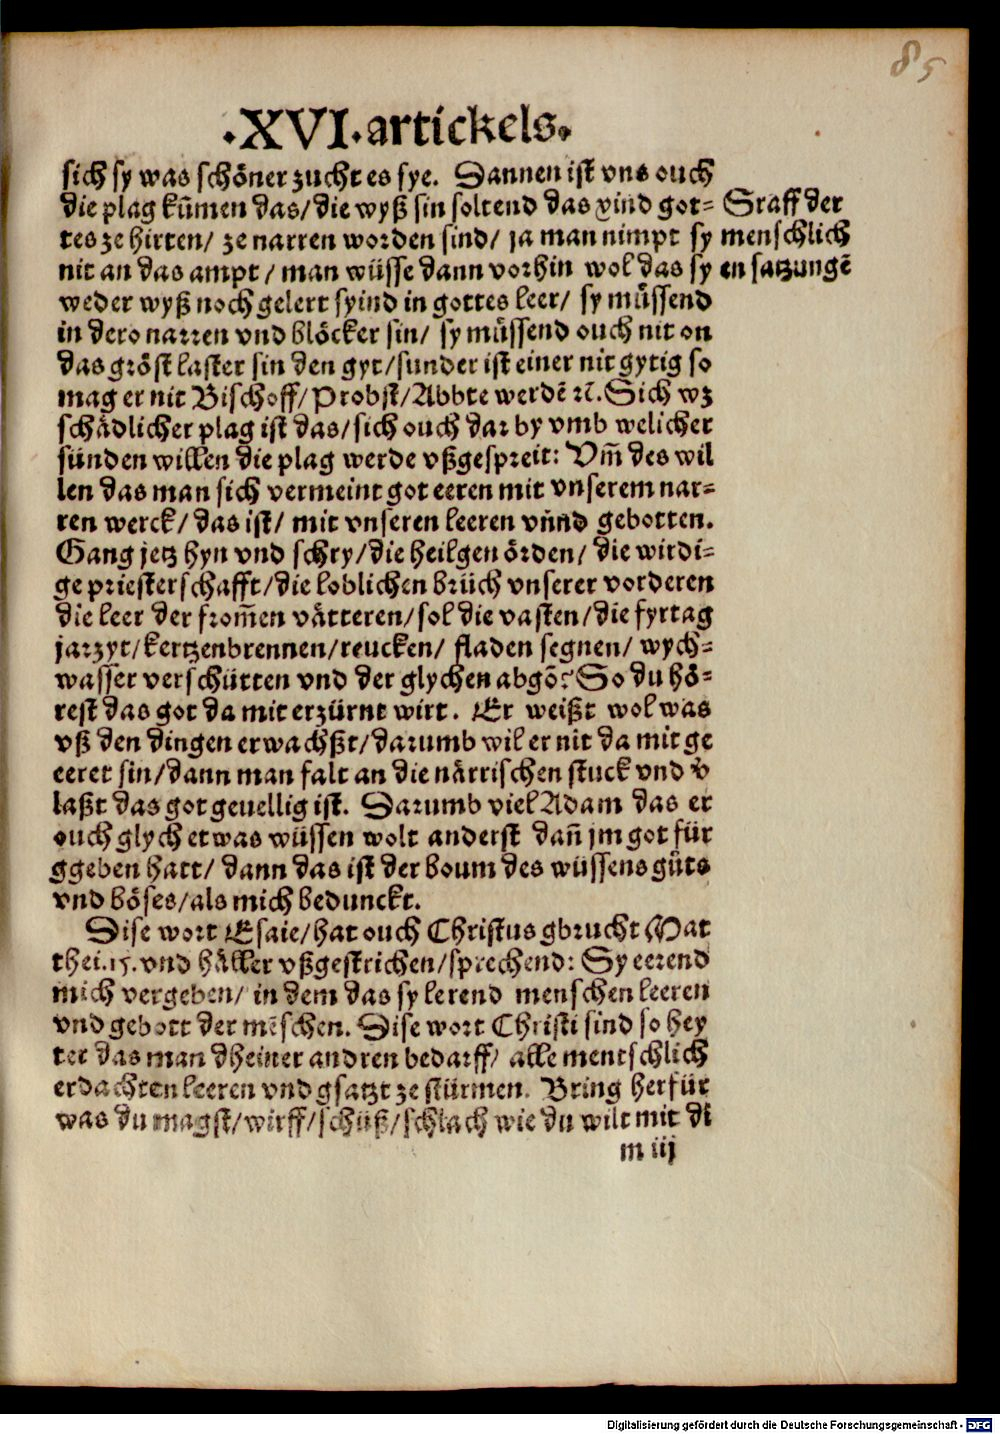 85
.XVI.artickels.
sich sy was schöner zucht es sye. Dannen ist vns ouch
die plag kūmen das/die wyß sin soltend das xind got=
Straff der
tes ze hirten/ ze narren worden sind/ ja man nimpt sy
menschlich
nit an das ampt/ man wüsse dann vorhin wol das sy
en satzungē
weder wyß noch gelert syind in gottes leer/ sy müssend
in dero narren vnd blöcker sin/ sy müssend ouch nit on
das gröst laster sin den gyt/sunder ist einer nit gytig so
mag er nit Bischoff/Probst/Abbte werdē ꝛc̄. Sich wz
schädlicher plag ist das/sich ouch dar by vmb welicher
sünden willen die plag werde vßgespreit: Vm̄ des wil
len das man sich vermeint got eeren mit vnserem nar=
ren werck/das ist/ mit vnseren leeren vn̄nd gebotten.
Gang jetz hyn vnd schry/die heilgen örden/ die wirdi=
ge priesterschafft/die loblichen brüch vnserer vorderen
die leer der from̄en vätteren/sol die vasten/die fyrtag
jarzyt/kertzenbrennen/reucken/ fladen segnen/ wych=
wasser verschütten vnd der glychen abgō? So du hö=
rest das got da mit erzürnt wirt. Er weißt wol was
vß den dingen erwachßt/darumb wil er nit da mit ge
eeret sin/dann man falt an die närrischen stuck vnd v̉
laßt das got geuellig ist. Darumb viel Adam das er
ouch glych etwas wüssen wolt anderst dan̄ jm got für
ggeben hatt/ dann das ist der boum des wüssens gůts
vnd böses/als mich bedunckt.
Dise wort Esaie/hat ouch Christus gbrucht Mat
thei.15.vnd häller vßgestrichen/sprechend: Sy eerend
mich vergeben/ in dem das sy lerend menschen leeren
vnd gebott der mēschen. Dise wort Christi sind so hey
ter das man dheiner andren bedarff/ alle mentschlich
erdachten leeren vnd gsatzt ze stürmen. Bring herfür
was du magst/wirff/schüß/schlach wie du wilt mit dī
m iij
Digitalisierung gefördert durch die Deutsche Forschungsgemeinschaft - DFG